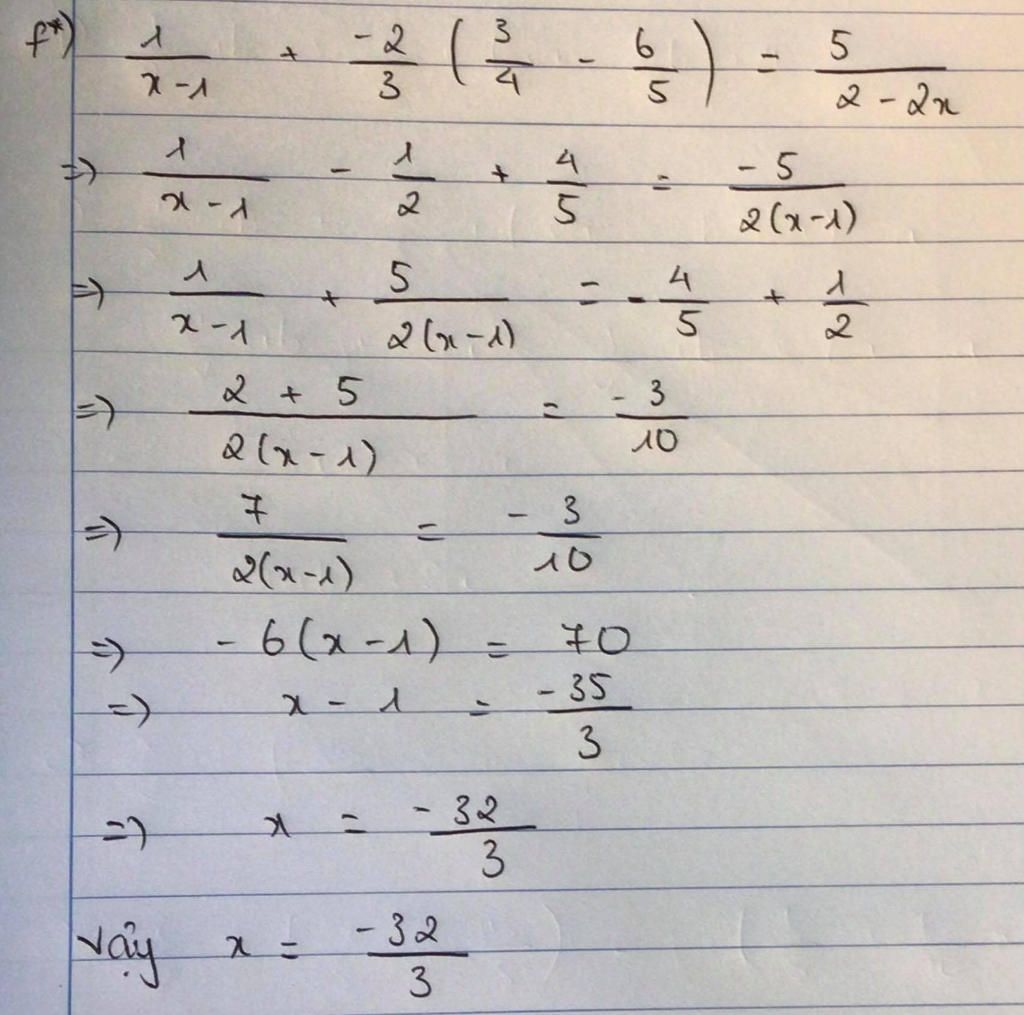 f*) 1/(x-1) + -2/3 (3/4 - 6/5) = 5/(2-2x)
=> 1/(x-1) - 1/2 + 4/5 = -5/(2(x-1))
=> 1/(x-1) + 5/(2(x-1)) = -4/5 + 1/2
=> (2+5)/(2(x-1)) = -3/10
=> 7/(2(x-1)) = -3/10
=> -6(x-1) = 70
=> x-1 = -35/3
=> x = -32/3
vậy x = -32/3